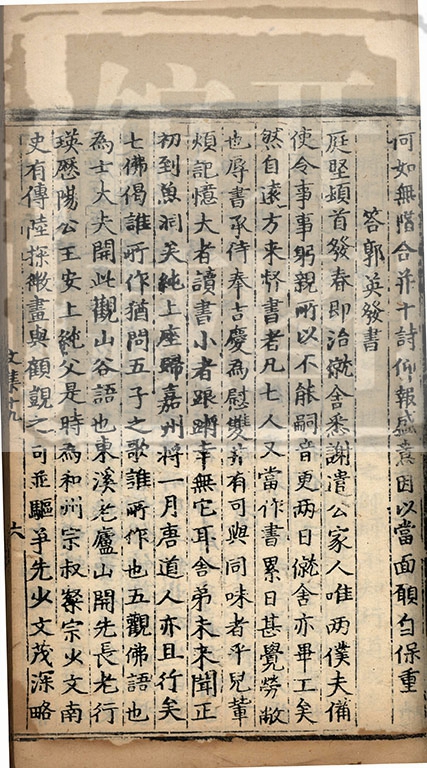 何如無階合并十詩仰報盛意因以當面願自保重
答郭英發書
庭堅頓首發春即治僦舍悉謝遣公家人唯两僕夫備
使令事事躬親所以不能嗣音更两日僦舍亦畢工矣
然自遠方来督書者凡七人又當作書累日甚覺勞敝
也辱書承侍奉吉慶為慰雙井有可與同味者乎兒輩
煩記憶大者讀書小者跟蹡幸無它耳舍弟未来聞正
初到魚洞矣純上座歸嘉州將一月唐道人亦且行矣
七佛偈誰所作猶問五子之歌誰所作也五觀佛語也
為士大夫開此觀山谷語也東溪老廬山開先長老行
瑛歷陽公王安上純父是時為和州宗叔粲宗少文南
史有傳陸探微畫與顧覬之可並驅爭先少文茂深略
文集十九
六